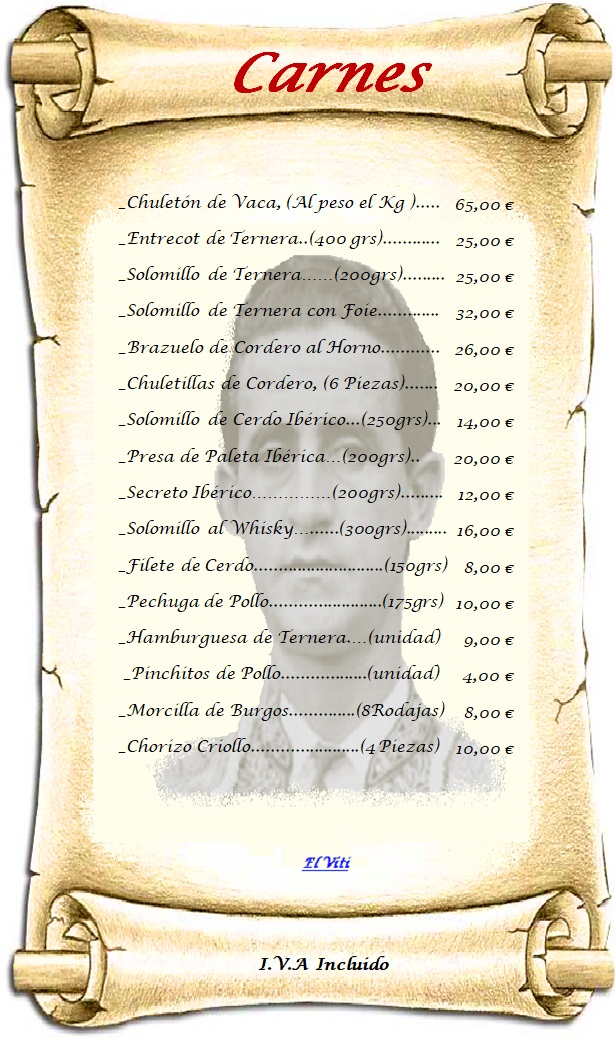 Carnes
_Chuletón de Vaca, (Al peso el Kg )..... 65,00 €
_Entrecot de Ternera..(400 grs)............ 25,00 €
_Solomillo de Ternera......(200grs)......... 25,00 €
_Solomillo de Ternera con Foie............. 32,00 €
_Brazuelo de Cordero al Horno............ 26,00 €
_Chuletillas de Cordero, (6 Piezas)....... 20,00 €
_Solomillo de Cerdo Ibérico...(250grs)... 14,00 €
_Presa de Paleta Ibérica...(200grs).. 20,00 €
_Secreto Ibérico.................(200grs)......... 12,00 €
_Solomillo al Whisky.........(300grs)......... 16,00 €
_Filete de Cerdo...........................(150grs) 8,00 €
_Pechuga de Pollo........................(175grs) 10,00 €
_Hamburguesa de Ternera....(unidad) 9,00 €
_Pinchitos de Pollo..................(unidad) 4,00 €
_Morcilla de Burgos..............(8Rodajas) 8,00 €
_Chorizo Criollo.......................(4 Piezas) 10,00 €
El Viti
I.V.A Incluido